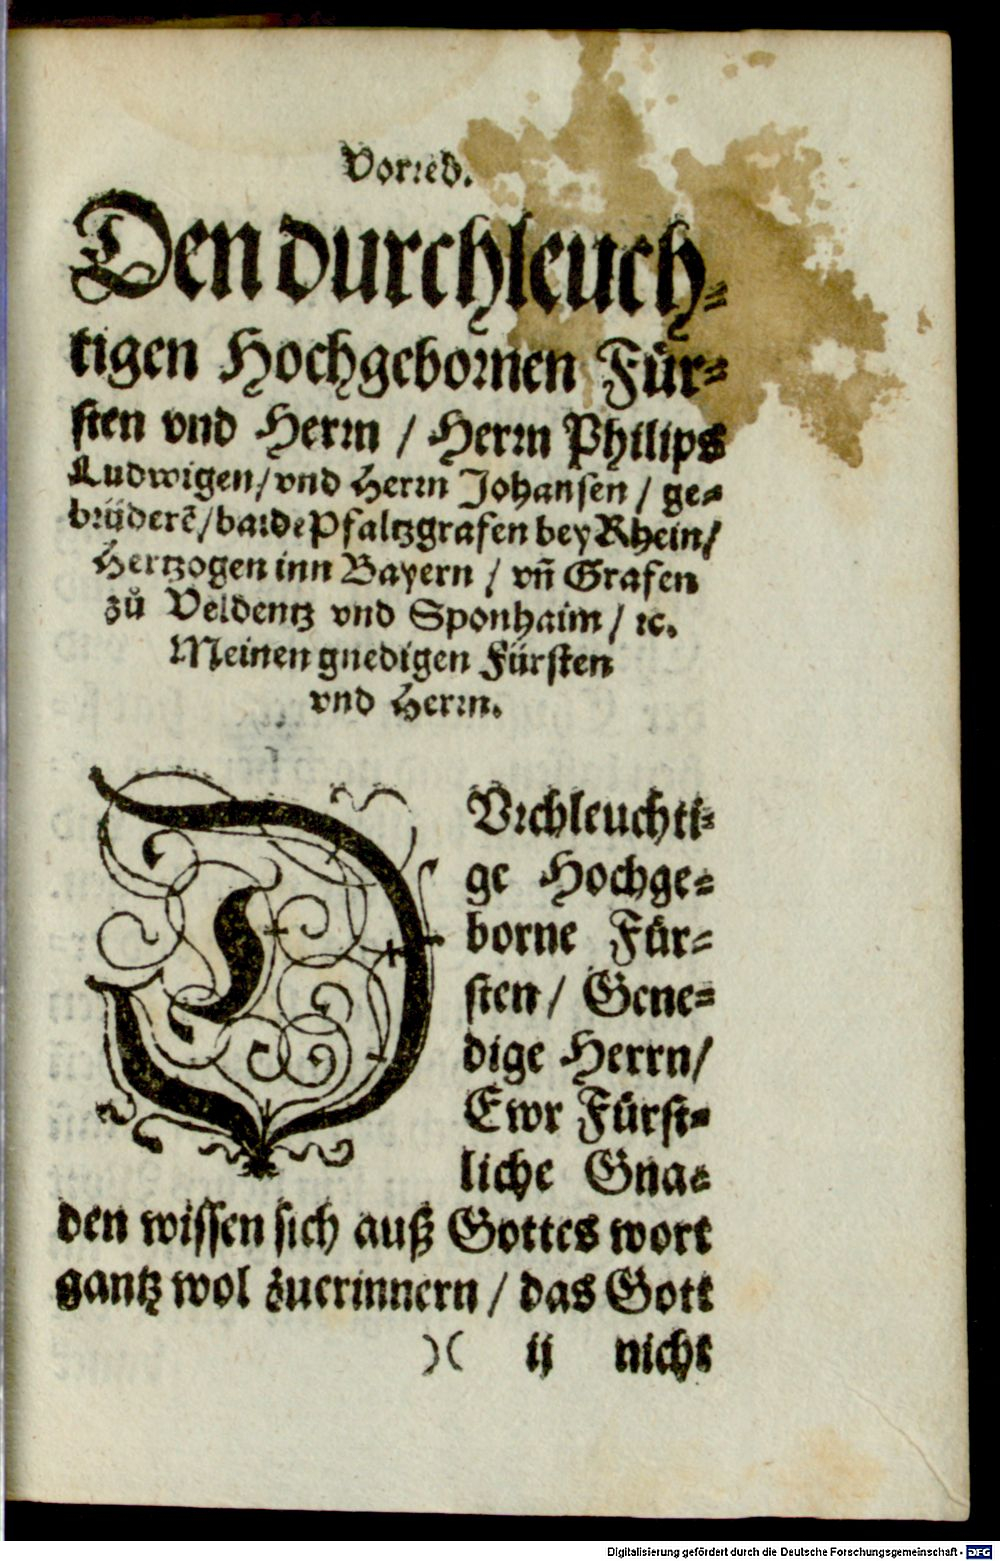 Vorred.
Den durchleuch⸗
tigen Hochgebornen Für⸗
sten vnd Herrn / Herrn Philips
Ludwigen / vnd Herrn Johansen / ge⸗
brüderẽ / baide Pfaltzgrafen bey Rhein /
Hertzogen inn Bayern / vñ Grafen
zů Veldentz vnd Sponhaim / ꝛc.
Meinen gnedigen Fürsten
vnd Herrn.
DVrchleuchti⸗
ge Hochge⸗
borne Für⸗
sten / Gene⸗
dige Herrn /
Ewr Fürst⸗
liche Gna⸗
den wissen sich auß Gottes wort
gantz wol zuerinnern / das Gott
)( ij nicht
Digitalisierung gefördert durch die Deutsche Forschungsgemeinschaft - DFG